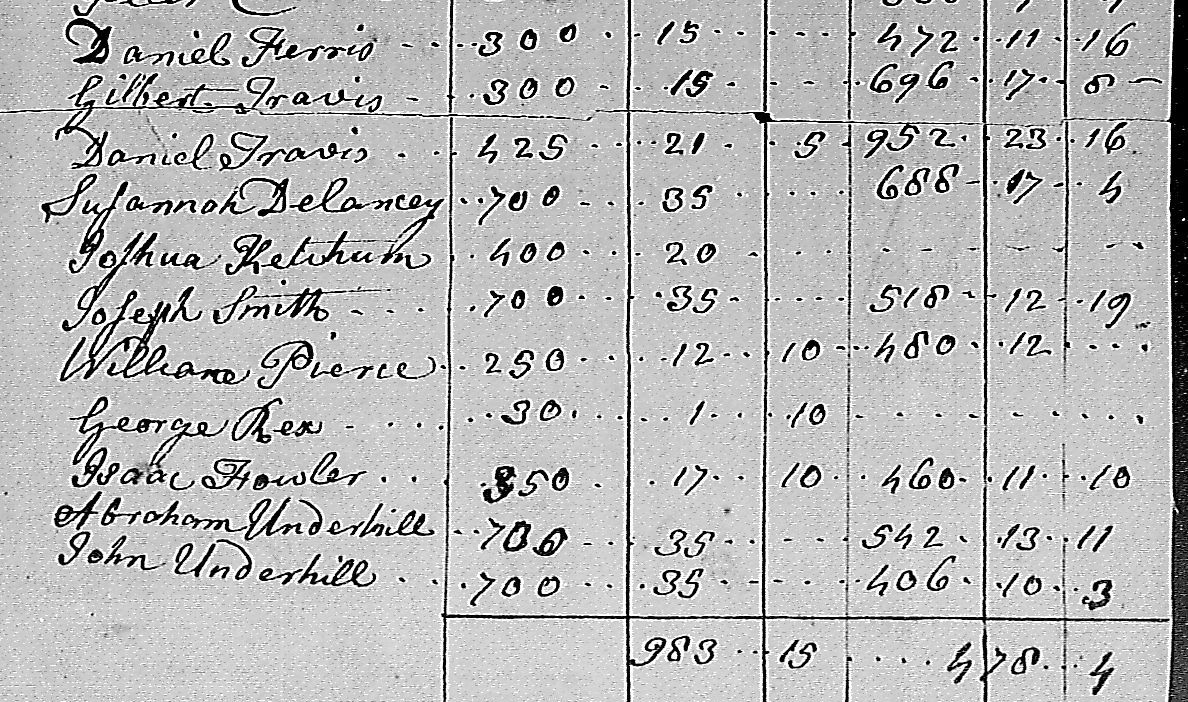 Daniel Ferris 300 15 472 11 16
Gilbert Travis 300 15 696 17 8
Daniel Travis 425 21 5 952 23 16
Susannah Delancey 700 35 688 17 4
Joshua Ketchum 400 20
Joseph Smith 700 35 518 12 19
William Pierce 250 12 10 480 12
George Rex 30 1 10
Isaac Fowler 350 17 10 460 11 10
Abraham Underhill 700 35 542 13 11
John Underhill 700 35 406 10 3
983 15 478 4